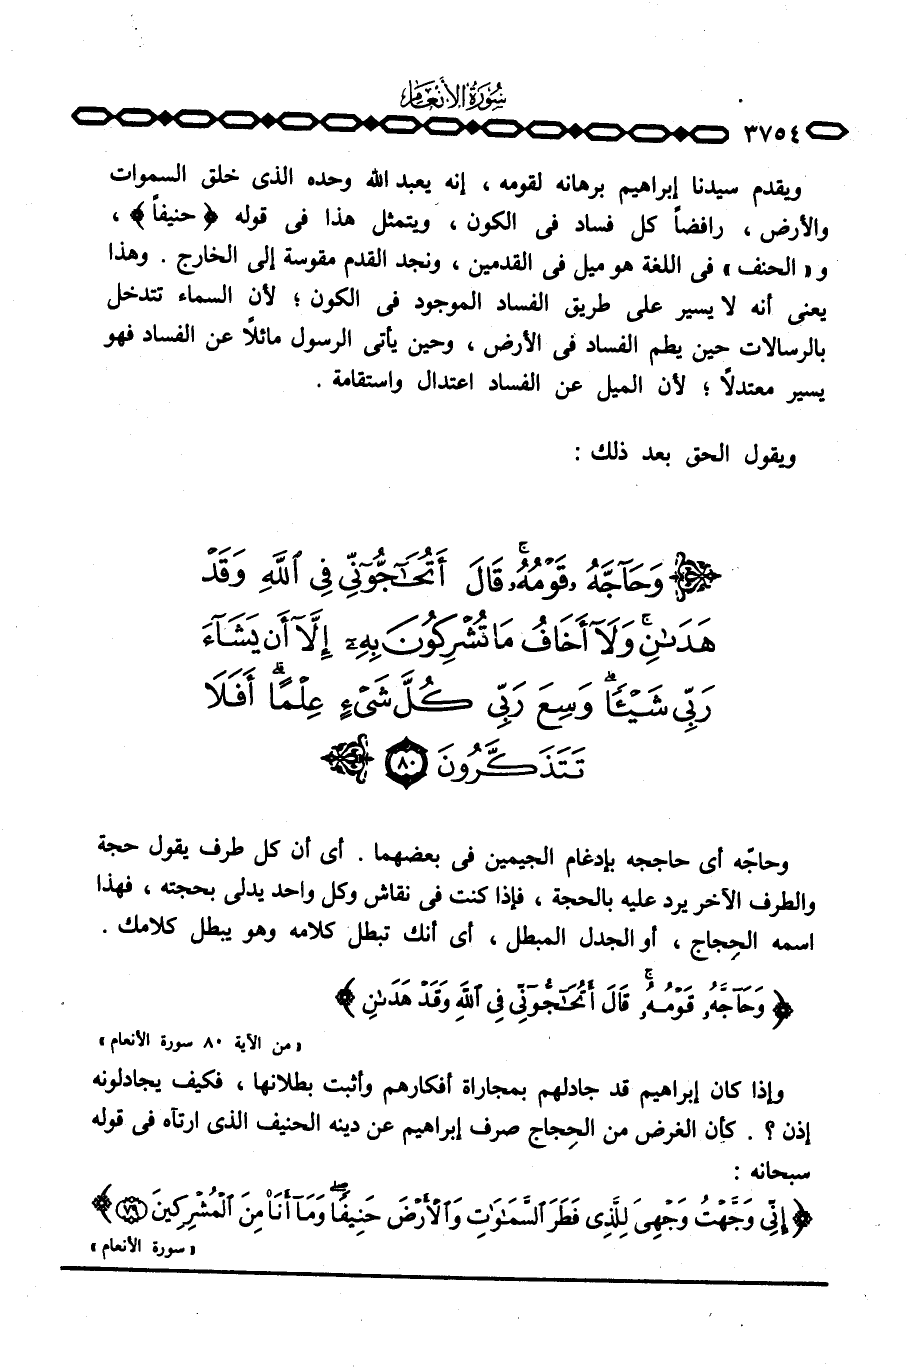 سُورَةُ الأَنْعَامِ
٣٧٥٤
ويقدم سيدنا إبراهيم برهانه لقومه ، إنه يعبد الله وحده الذى خلق السموات
والأرض ، رافضاً كل فساد فى الكون ، ويتمثل هذا فى قوله ﴿ حنيفاً ﴾ ،
و « الحنف » فى اللغة هو ميل فى القدمين ، ونجد القدم مقوسة إلى الخارج . وهذا
يعنى أنه لا يسير على طريق الفساد الموجود فى الكون ؛ لأن السماء تتدخل
بالرسالات حين يطم الفساد فى الأرض ، وحين يأتى الرسول مائلاً عن الفساد فهو
يسير معتدلاً ؛ لأن الميل عن الفساد اعتدال واستقامة .
ويقول الحق بعد ذلك :
﴿ وَحَآجَّهُۥ قَوْمُهُۥ ۚ قَالَ أَتُحَـٰٓجُّوٓنِّى فِى ٱللَّهِ وَقَدْ
هَدَىٰنِ ۚ وَلَآ أَخَافُ مَا تُشْرِكُونَ بِهِۦٓ إِلَّآ أَن يَشَآءَ
رَبِّى شَيْـًٔا ۗ وَسِعَ رَبِّى كُلَّ شَىْءٍ عِلْمًا ۗ أَفَلَا
تَتَذَكَّرُونَ ٨٠ ﴾
وحاجّه أى حاججه بإدغام الجيمين فى بعضهما . أى أن كل طرف يقول حجة
والطرف الآخر يرد عليه بالحجة ، فإذا كنت فى نقاش وكل واحد يدلى بحجته ، فهذا
اسمه الحِجاج ، أو الجدل المبطل ، أى أنك تبطل كلامه وهو يبطل كلامك .
﴿ وَحَآجَّهُۥ قَوْمُهُۥ ۚ قَالَ أَتُحَـٰٓجُّوٓنِّى فِى ٱللَّهِ وَقَدْ هَدَىٰنِ ﴾
« من الآية ٨٠ سورة الأنعام »
وإذا كان إبراهيم قد جادلهم بمجاراة أفكارهم وأثبت بطلانها ، فكيف يجادلونه
إذن ؟ . كأن الغرض من الحِجاج صرف إبراهيم عن دينه الحنيف الذى ارتآه فى قوله
سبحانه :
﴿ إِنِّى وَجَّهْتُ وَجْهِىَ لِلَّذِى فَطَرَ ٱلسَّمَـٰوَٰتِ وَٱلْأَرْضَ حَنِيفًا ۖ وَمَآ أَنَا۠ مِنَ ٱلْمُشْرِكِينَ ٧٩ ﴾
« سورة الأنعام »